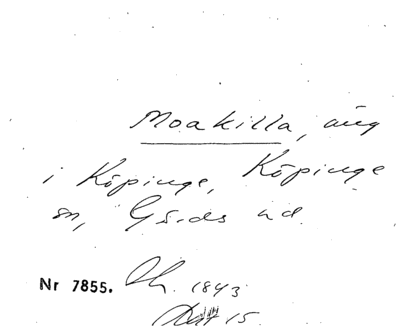 Moakilla, äng
i Köpinge, Köpinge
sn, Gärds hd.
Nr 7855. Lh. 1843
15